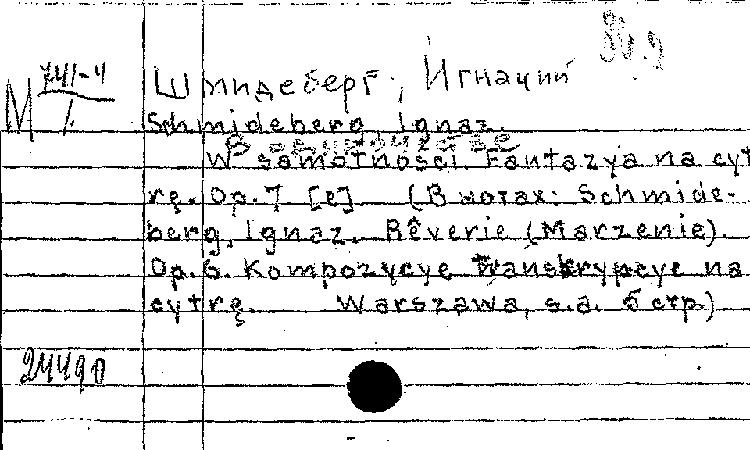 М 741-4
1
Шмидеберг, Игнаций
Schmideberg, Ignaz.
W samotności. Fantazya na cyt
rę. Op. 7 [e] (В нотах: Schmide-
berg, Ignaz. Rêverie (Marzenie).
Op. 6. Kompozycye transkrypcye na
cytrę. Warszawa, s.a. 5 стр.)
24490